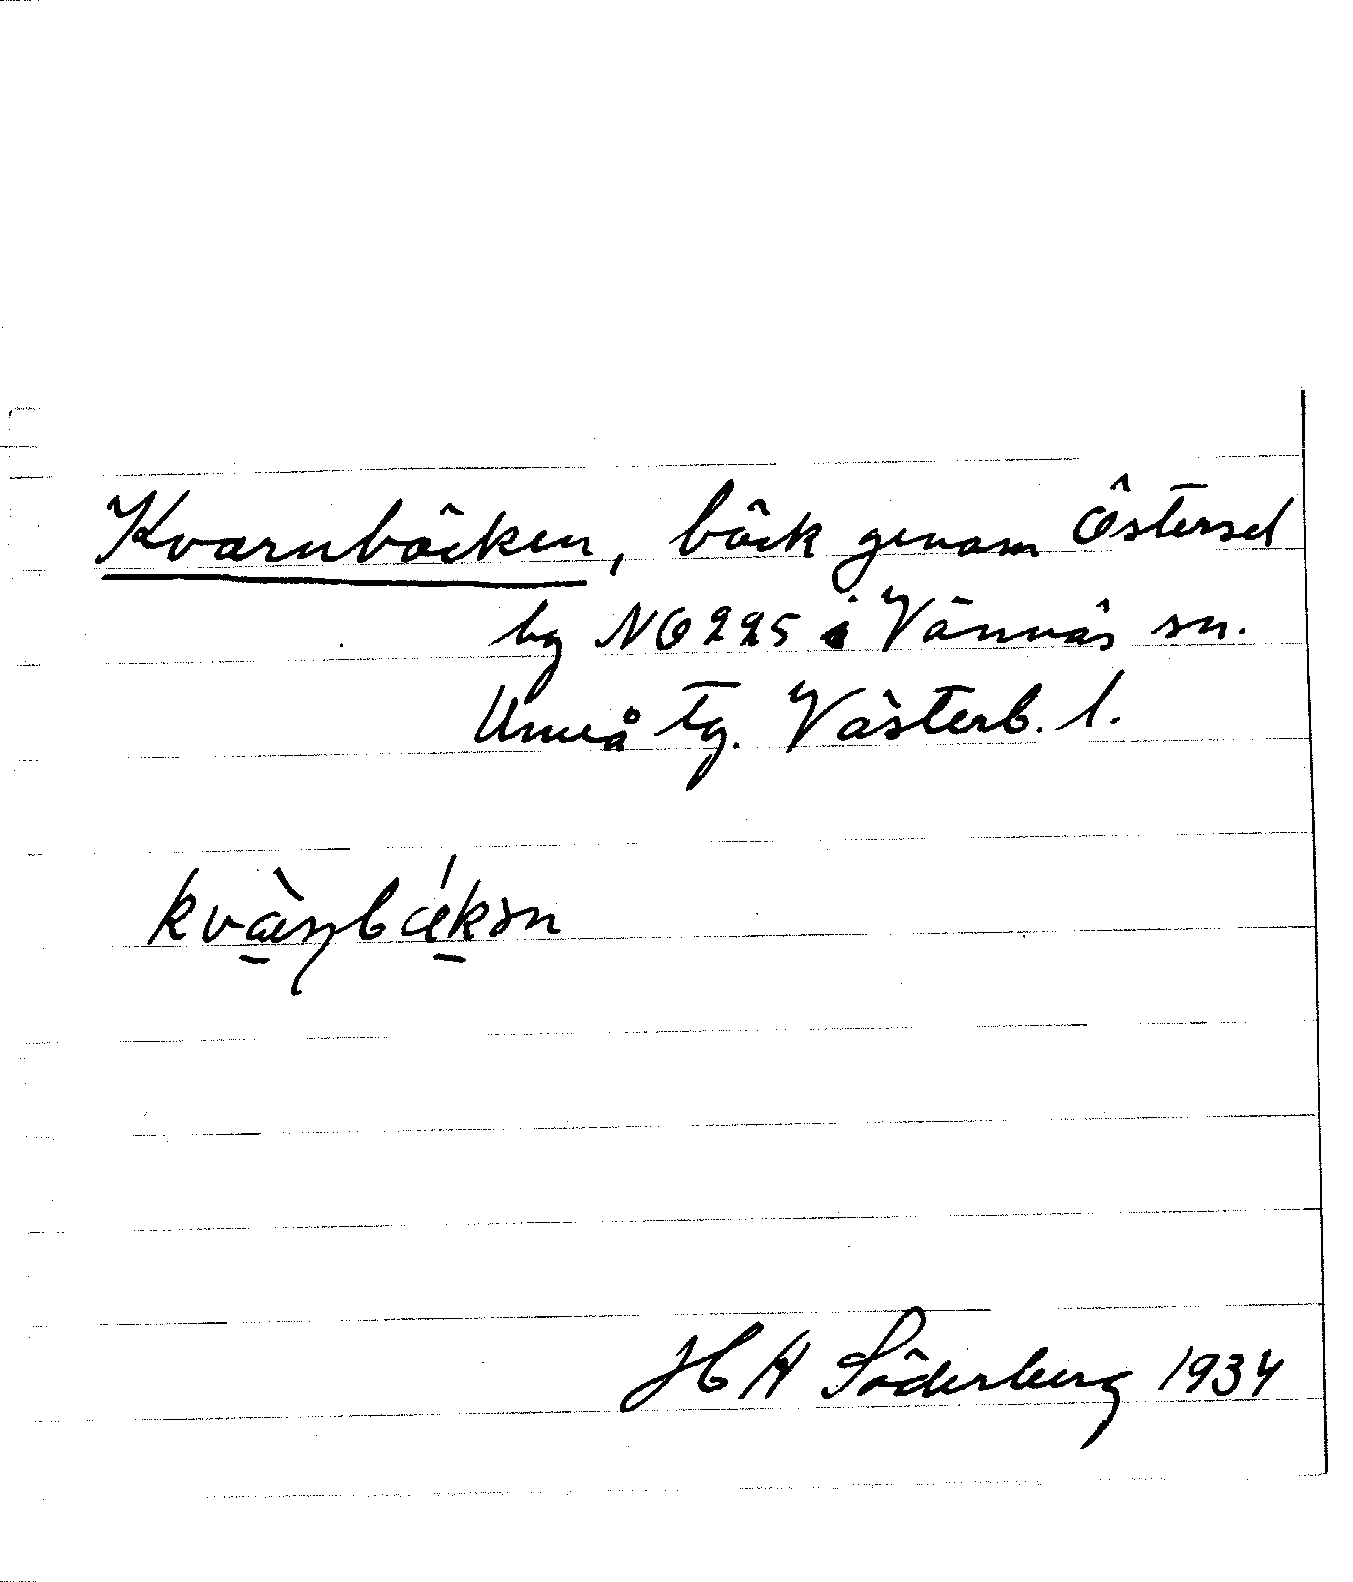 Kvarnbäcken, bäck genom Östersel
by NO 225 i Vännäs sn.
Umeå tg. Västerb. l.
kvæ̀ɳbǽkən
H A Söderberg 1934